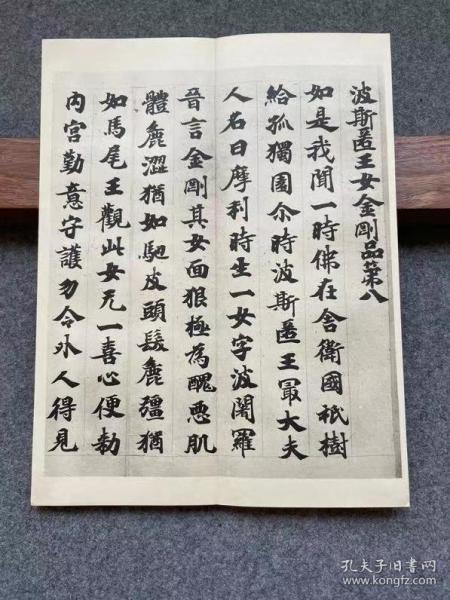 波斯匿王女金剛品第八
如是我聞一時佛在舍衛國祇樹
給孤獨園尒時波斯匿王冣大夫
人名曰摩利時生一女字波闍羅
晉言金剛其女面狠極為醜惡肌
體麁澀猶如駞皮頭髮麁彊猶
如馬尾王觀此女无一喜心便勑
內宮勤意守護勿令外人得見
孔夫子旧书网
www.kongfz.com